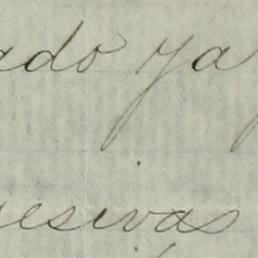 ado ya
esivas